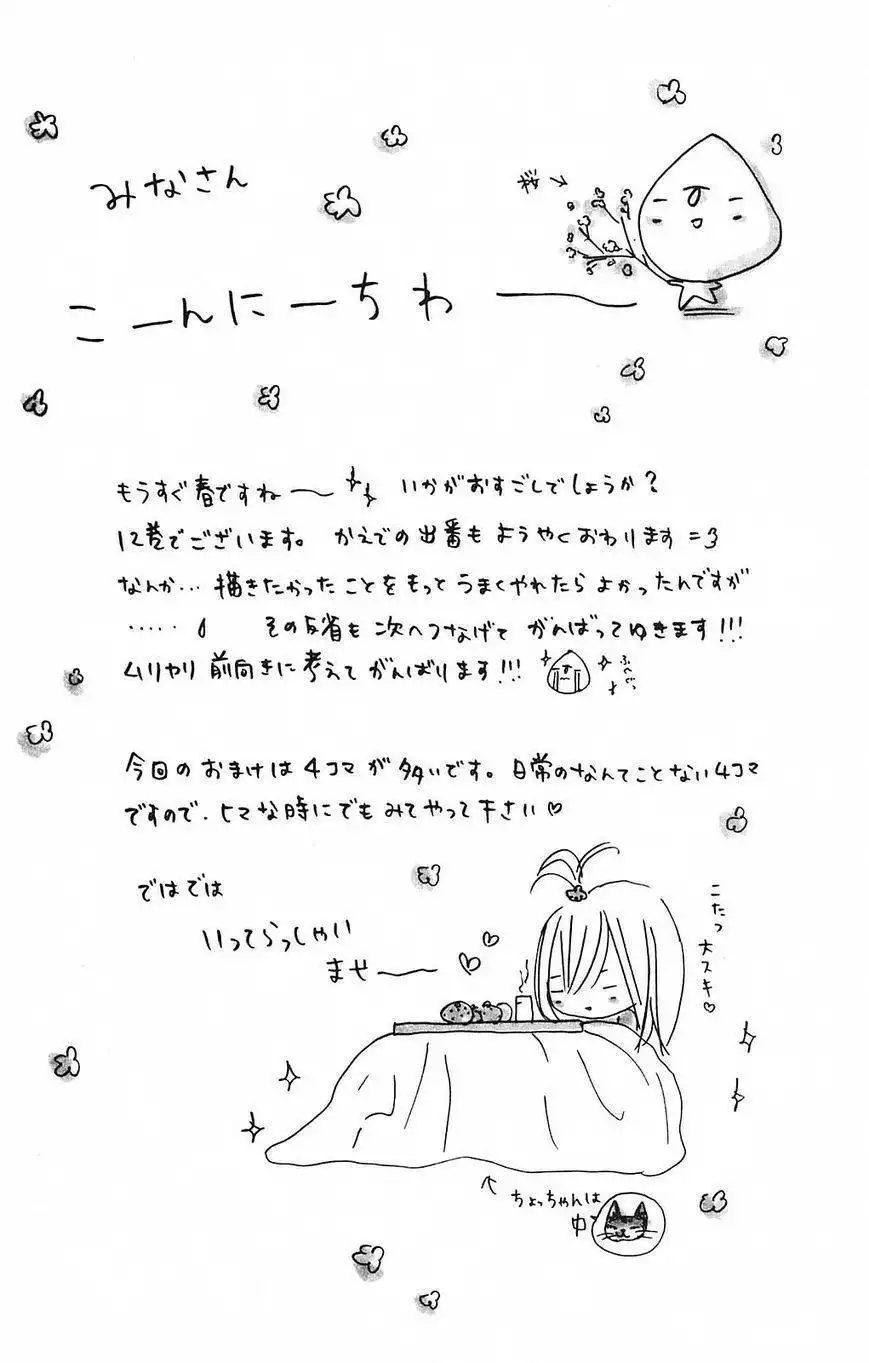 みなさん
桜
こーんにーちわー
もうすぐ春ですね〜 いかがおすごしでしょうか?
12巻でございます。 かえでの出番もようやくおわります=3
なんか… 描きたかったことをもっとうまくやれたらよかったんですが
‥‥‥ その反省も次へつなげてがんばってゆきます!!!
ムリヤリ前向きに考えてがんばります!!!
今回のおまけは4コマが多いです。日常のなんてことない4コマ
ですので、ヒマな時にでもみてやって下さい♡
ではでは
いってらっしゃい
ませ〜
こたつ
大スキ♡
ちょっちゃんは
中